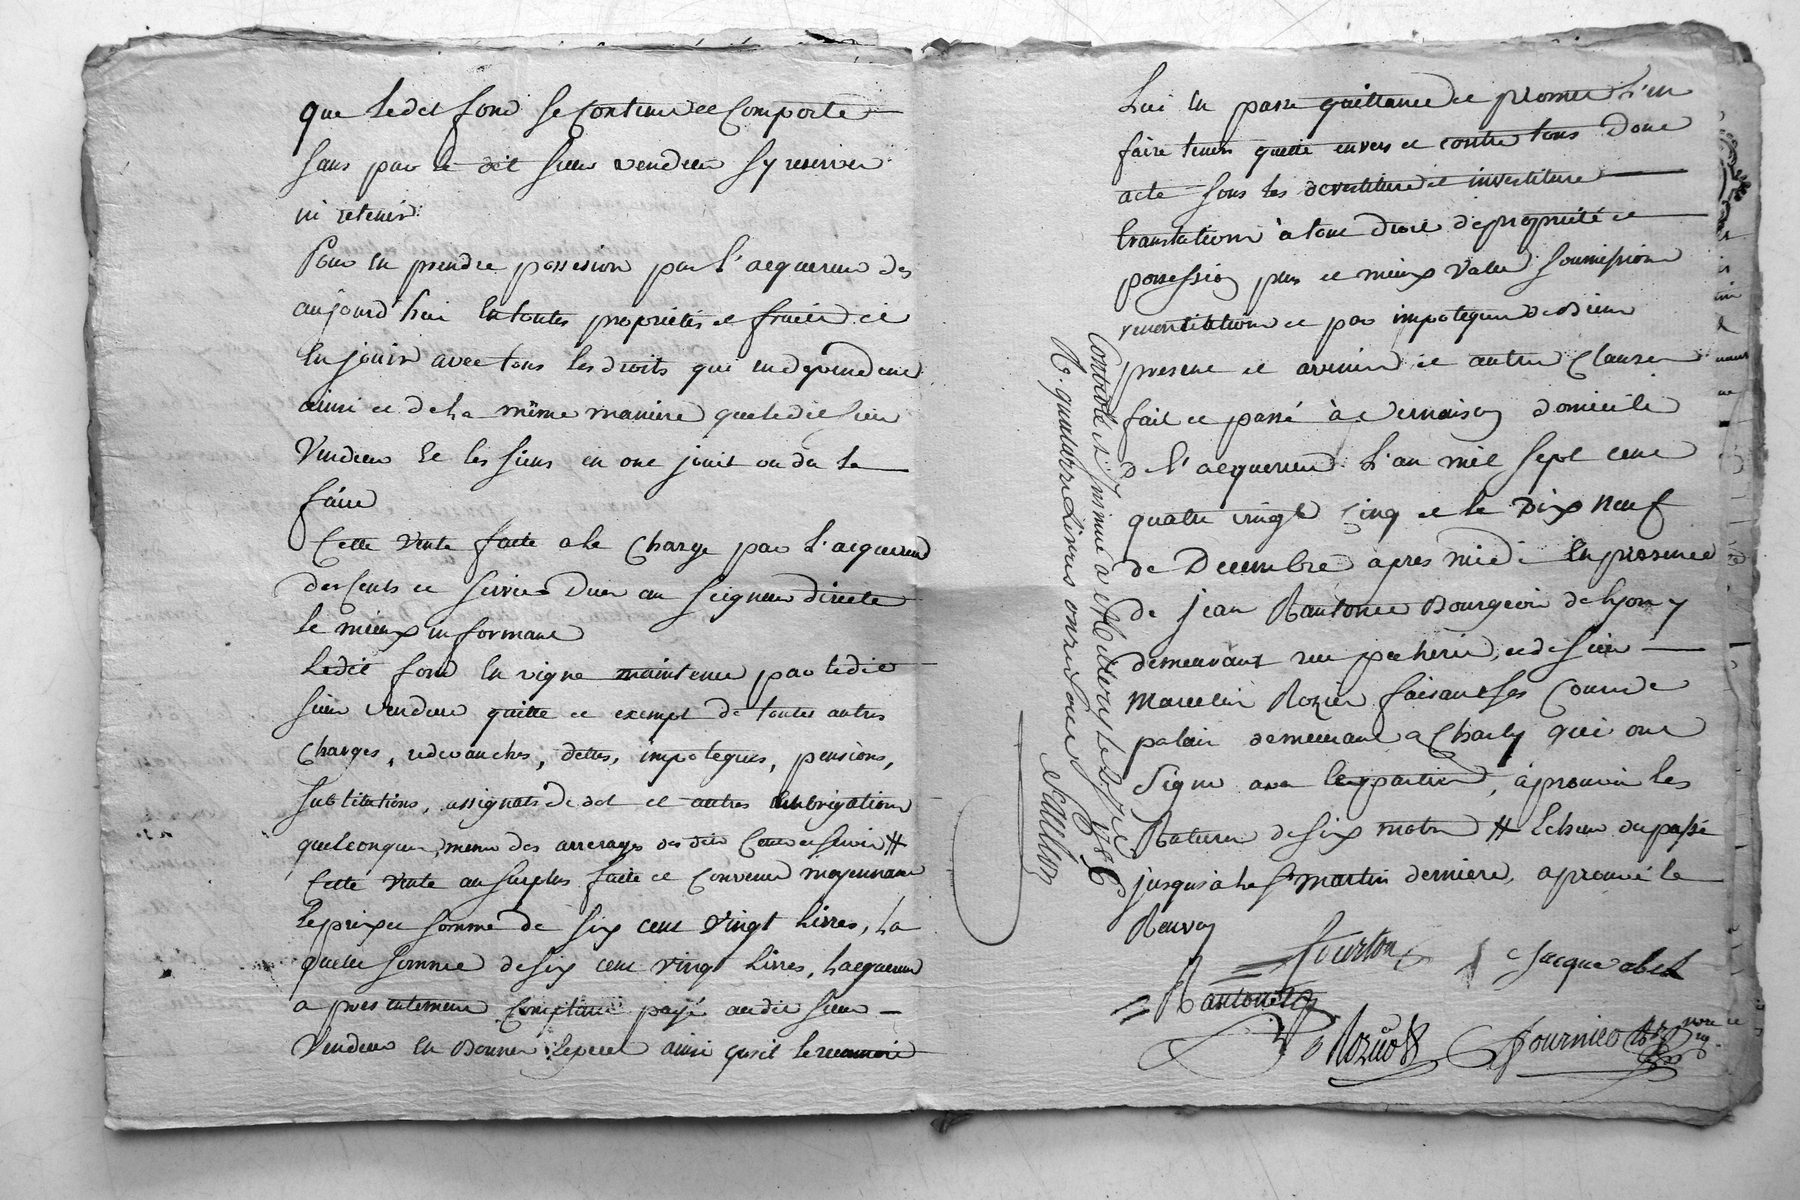 que ledit fond se Contient et Comporte
sans par le dit sieur vendeur sy reserver
ni retenir
Pour en prendre possession par l'acquereur des
aujourd'hui en toutes proprietés et fruits et
en jouir avec tous les droits qui en dependent
ainsi et de la même maniere que ledit sieur
Vendeur et les siens en ont jouit ou du le
faire
Cette vente faite a la Charge par l'acquereur
des Cents et servis Dues au seigneur directe
le mieux informant
Ledit fond en vigne maintenu par ledit
sieur vendeur quitte et exempt de toutes autres
Charges, redevanches, dettes, impoteques, pensions,
substitutions, assignats de dot et autres
quelconques, meme des arrerages des dits Cents et servis #
Cette vente au surplus faite et Convenue moyennant
le prix et somme de six cent vingt livres, la
quelle somme de six cent vingt livres, l'acquereur
a presentement Comptant payé audit sieur
Vendeur en bonnes especes ainsi qu'il le reconnoit
Lui en passe quittance et promet l'en
faire tenir quitte envers et contre tous Dont
acte sous les devestiture et investiture
translation à tout Droit de propriété et
possession plus et mieux value soumission
restitution et par impoteque de biens
present et avenir et autres Clauses
fait et passé à Vernaison domicile
de l'acquereur L'an mil sept cent
quatre vingt Cinq et le Dix neuf
de Decembre apres midi En presence
de jean Rantonet Bourgeois de Lyon y
demeurant rue pecherie, et de sieur
Marcelin Rozier faisant ses Cours de
palais demeurant a Charly qui ont
signe avec les parties, aprouvé les
Ratures de six mots # Echeus du passé
jusqu'à la St martin derniere, aprouvé le
Renvoy
Fourton
Jacque abel
Rantonet
Rozier
Fournier
Controlé et Insinué a Millery le 2 1786
R. quatorze Livres onze sous